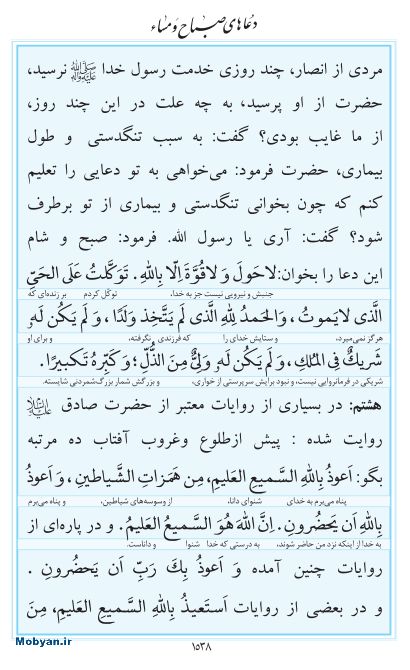 دعاهای صباح و مساء
مردی از انصار، چند روزی خدمت رسول خدا ﷺ نرسید،
حضرت از او پرسید، به چه علت در این چند روز،
از ما غایب بودی؟ گفت: به سبب تنگدستی و طول
بیماری، حضرت فرمود: می‌خواهی به تو دعایی را تعلیم
کنم که چون بخوانی تنگدستی و بیماری از تو برطرف
شود؟ گفت: آری یا رسول الله. فرمود: صبح و شام
این دعا را بخوان: لاحَولَ وَ لاقُوَّةَ اِلّا بِاللهِ. تَوَکَّلتُ عَلَی الحَیِّ
جنبش و نیرویی نیست جز به خدا، توکّل کردم بر زنده‌ای که
الَّذی لایَموتُ، وَ الحَمدُ لِلّهِ الَّذی لَم یَتَّخِذ وَلَدًا، وَ لَم یَکُن لَهُ
هرگز نمی‌میرد، و ستایش خدای را که فرزندی نگرفته، و برای او
شَریکٌ فِی المُلکِ، وَ لَم یَکُن لَهُ وَلِیٌّ مِنَ الذُّلِّ؛ وَ کَبِّرهُ تَکبیرًا.
شریکی در فرمانروایی نیست، و نبود برایش سرپرستی از خواری، و بزرگش شمار بزرگ‌شمردنی شایسته.
هشتم: در بسیاری از روایات معتبر از حضرت صادق علیه‌السلام
روایت شده : پیش ازطلوع وغروب آفتاب ده مرتبه
بگو: اَعوذُ بِاللهِ السَّمیعِ العَلیمِ، مِن هَمَزاتِ الشَّیاطینِ، وَ اَعوذُ
پناه می‌برم به خدای شنوای دانا، از وسوسه‌های شیاطین، و پناه می‌برم
بِاللهِ اَن یَحضُرونِ. اِنَّ اللهَ هُوَ السَّمیعُ العَلیمُ. و در پاره‌ای از
به خدا از اینکه نزد من حاضر شوند، به درستی که خدا شنوا و داناست.
روایات چنین آمده وَ اَعوذُ بِكَ رَبِّ اَن یَحضُرونِ .
و در بعضی از روایات اَستَعیذُ بِاللهِ السَّمیعِ العَلیمِ، مِنَ
Mobyan.ir
۱۵۳۸